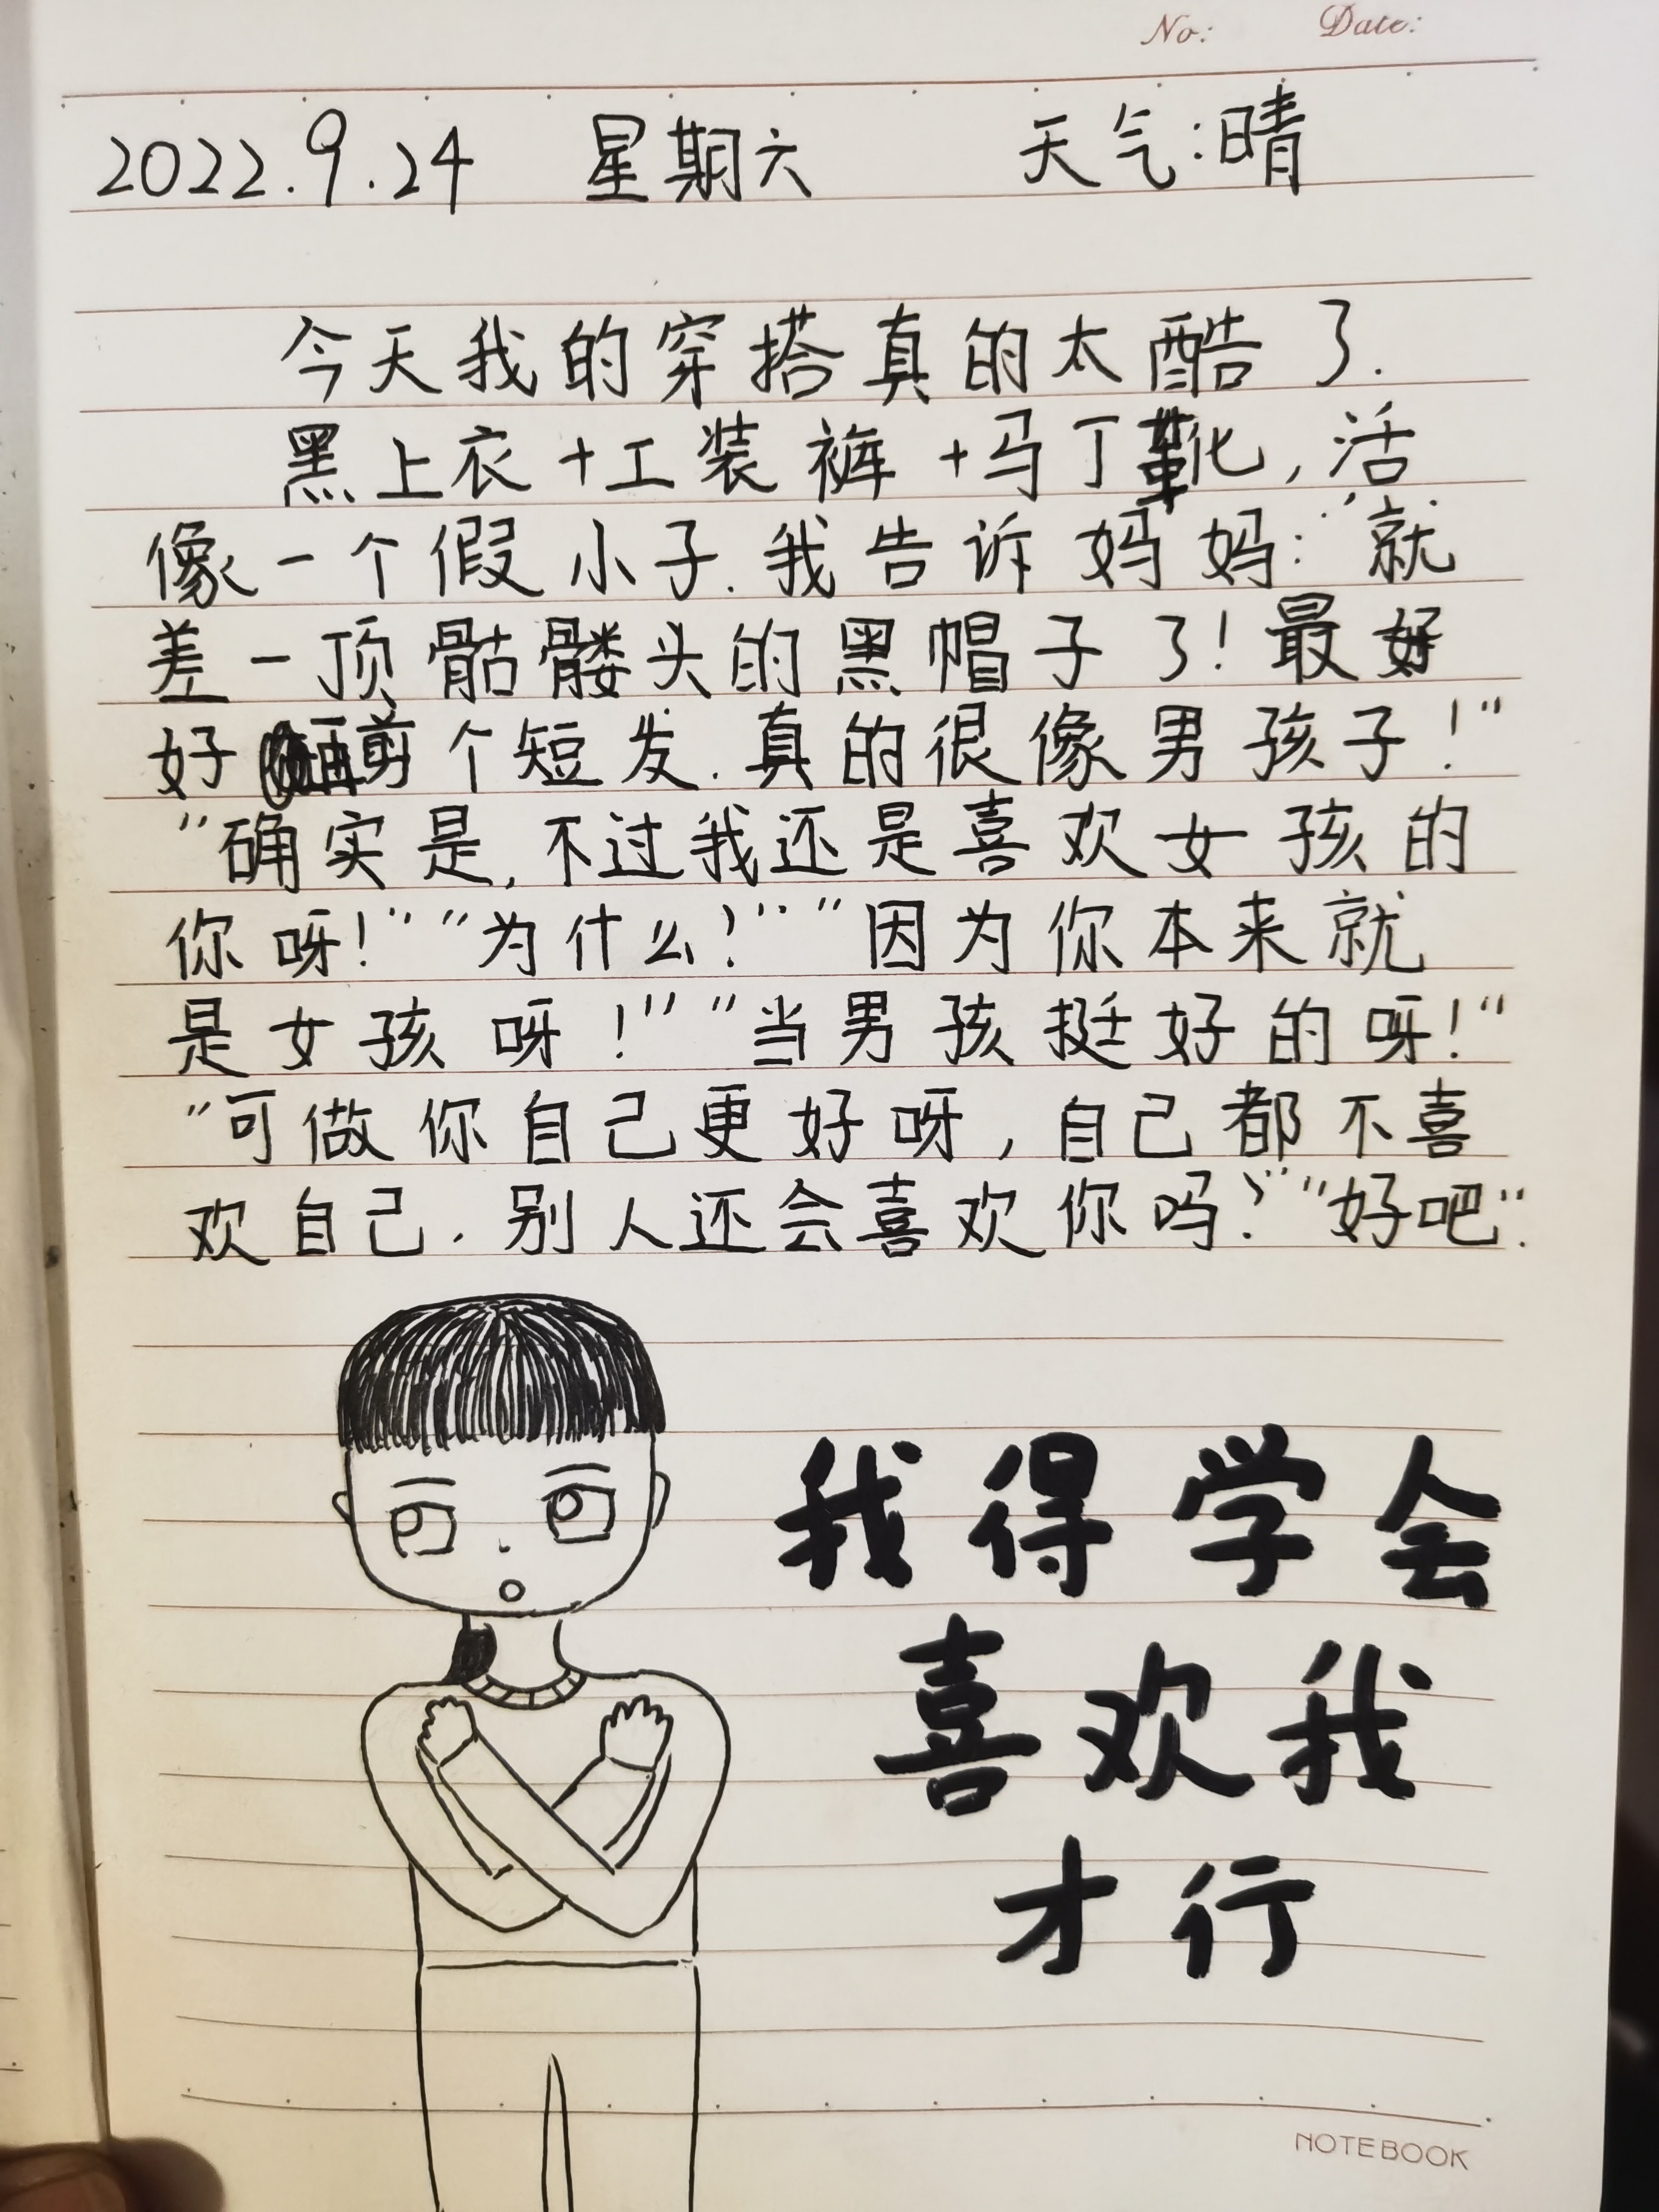 No: Date:
2022.9.24 星期六 天气:晴
今天我的穿搭真的太酷了.
黑上衣+工装裤+马丁靴,活
像一个假小子.我告诉妈妈:"就
差一顶骷髅头的黑帽子了!最好
好剪个短发.真的很像男孩子!"
"确实是,不过我还是喜欢女孩的
你呀!""为什么?""因为你本来就
是女孩呀!""当男孩挺好的呀!"
"可做你自己更好呀,自己都不喜
欢自己.别人还会喜欢你吗?""好吧".
我得学会
喜欢我
才行
NOTEBOOK